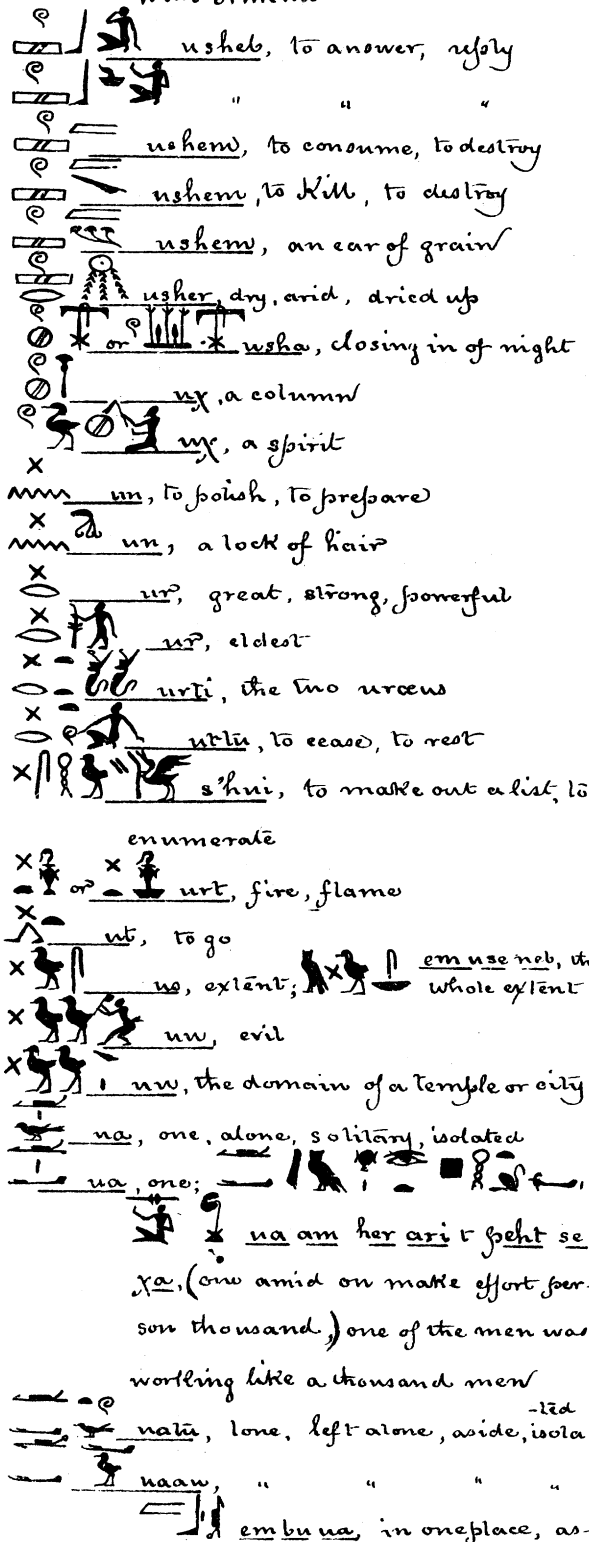 usheb, to answer, reply
" " "
ushem, to consume, to destroy
ushem, to kill, to destroy
ushem, an ear of grain
usher, dry, arid, dried up
or usha, closing in of night
uχ, a column
uχ, a spirit
un, to polish, to prepare
un, a lock of hair
ur, great, strong, powerful
ur, eldest
urti, the two uræus
urtu, to cease, to rest
s'hui, to make out a list, to
enumerate
or urt, fire, flame
ut, to go
us, extent; em use neb, the
whole extent
uu, evil
uu, the domain of a temple or city
ua, one, alone, solitary, isolated
ua, one;
ua am her ari t peht se
χa, (one amid on make effort per-
son thousand,) one of the men was
working like a thousand men
uatu, lone, left alone, aside, isola
-ted
uaau, " " " "
em bu ua, in one place, as-